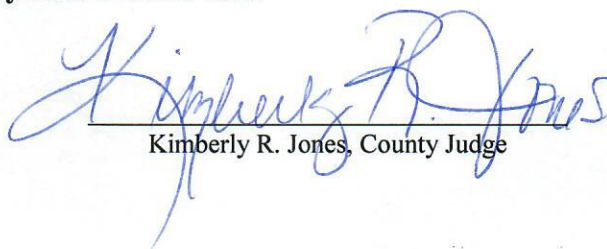 Kimberly R. Jones
Kimberly R. Jones, County Judge